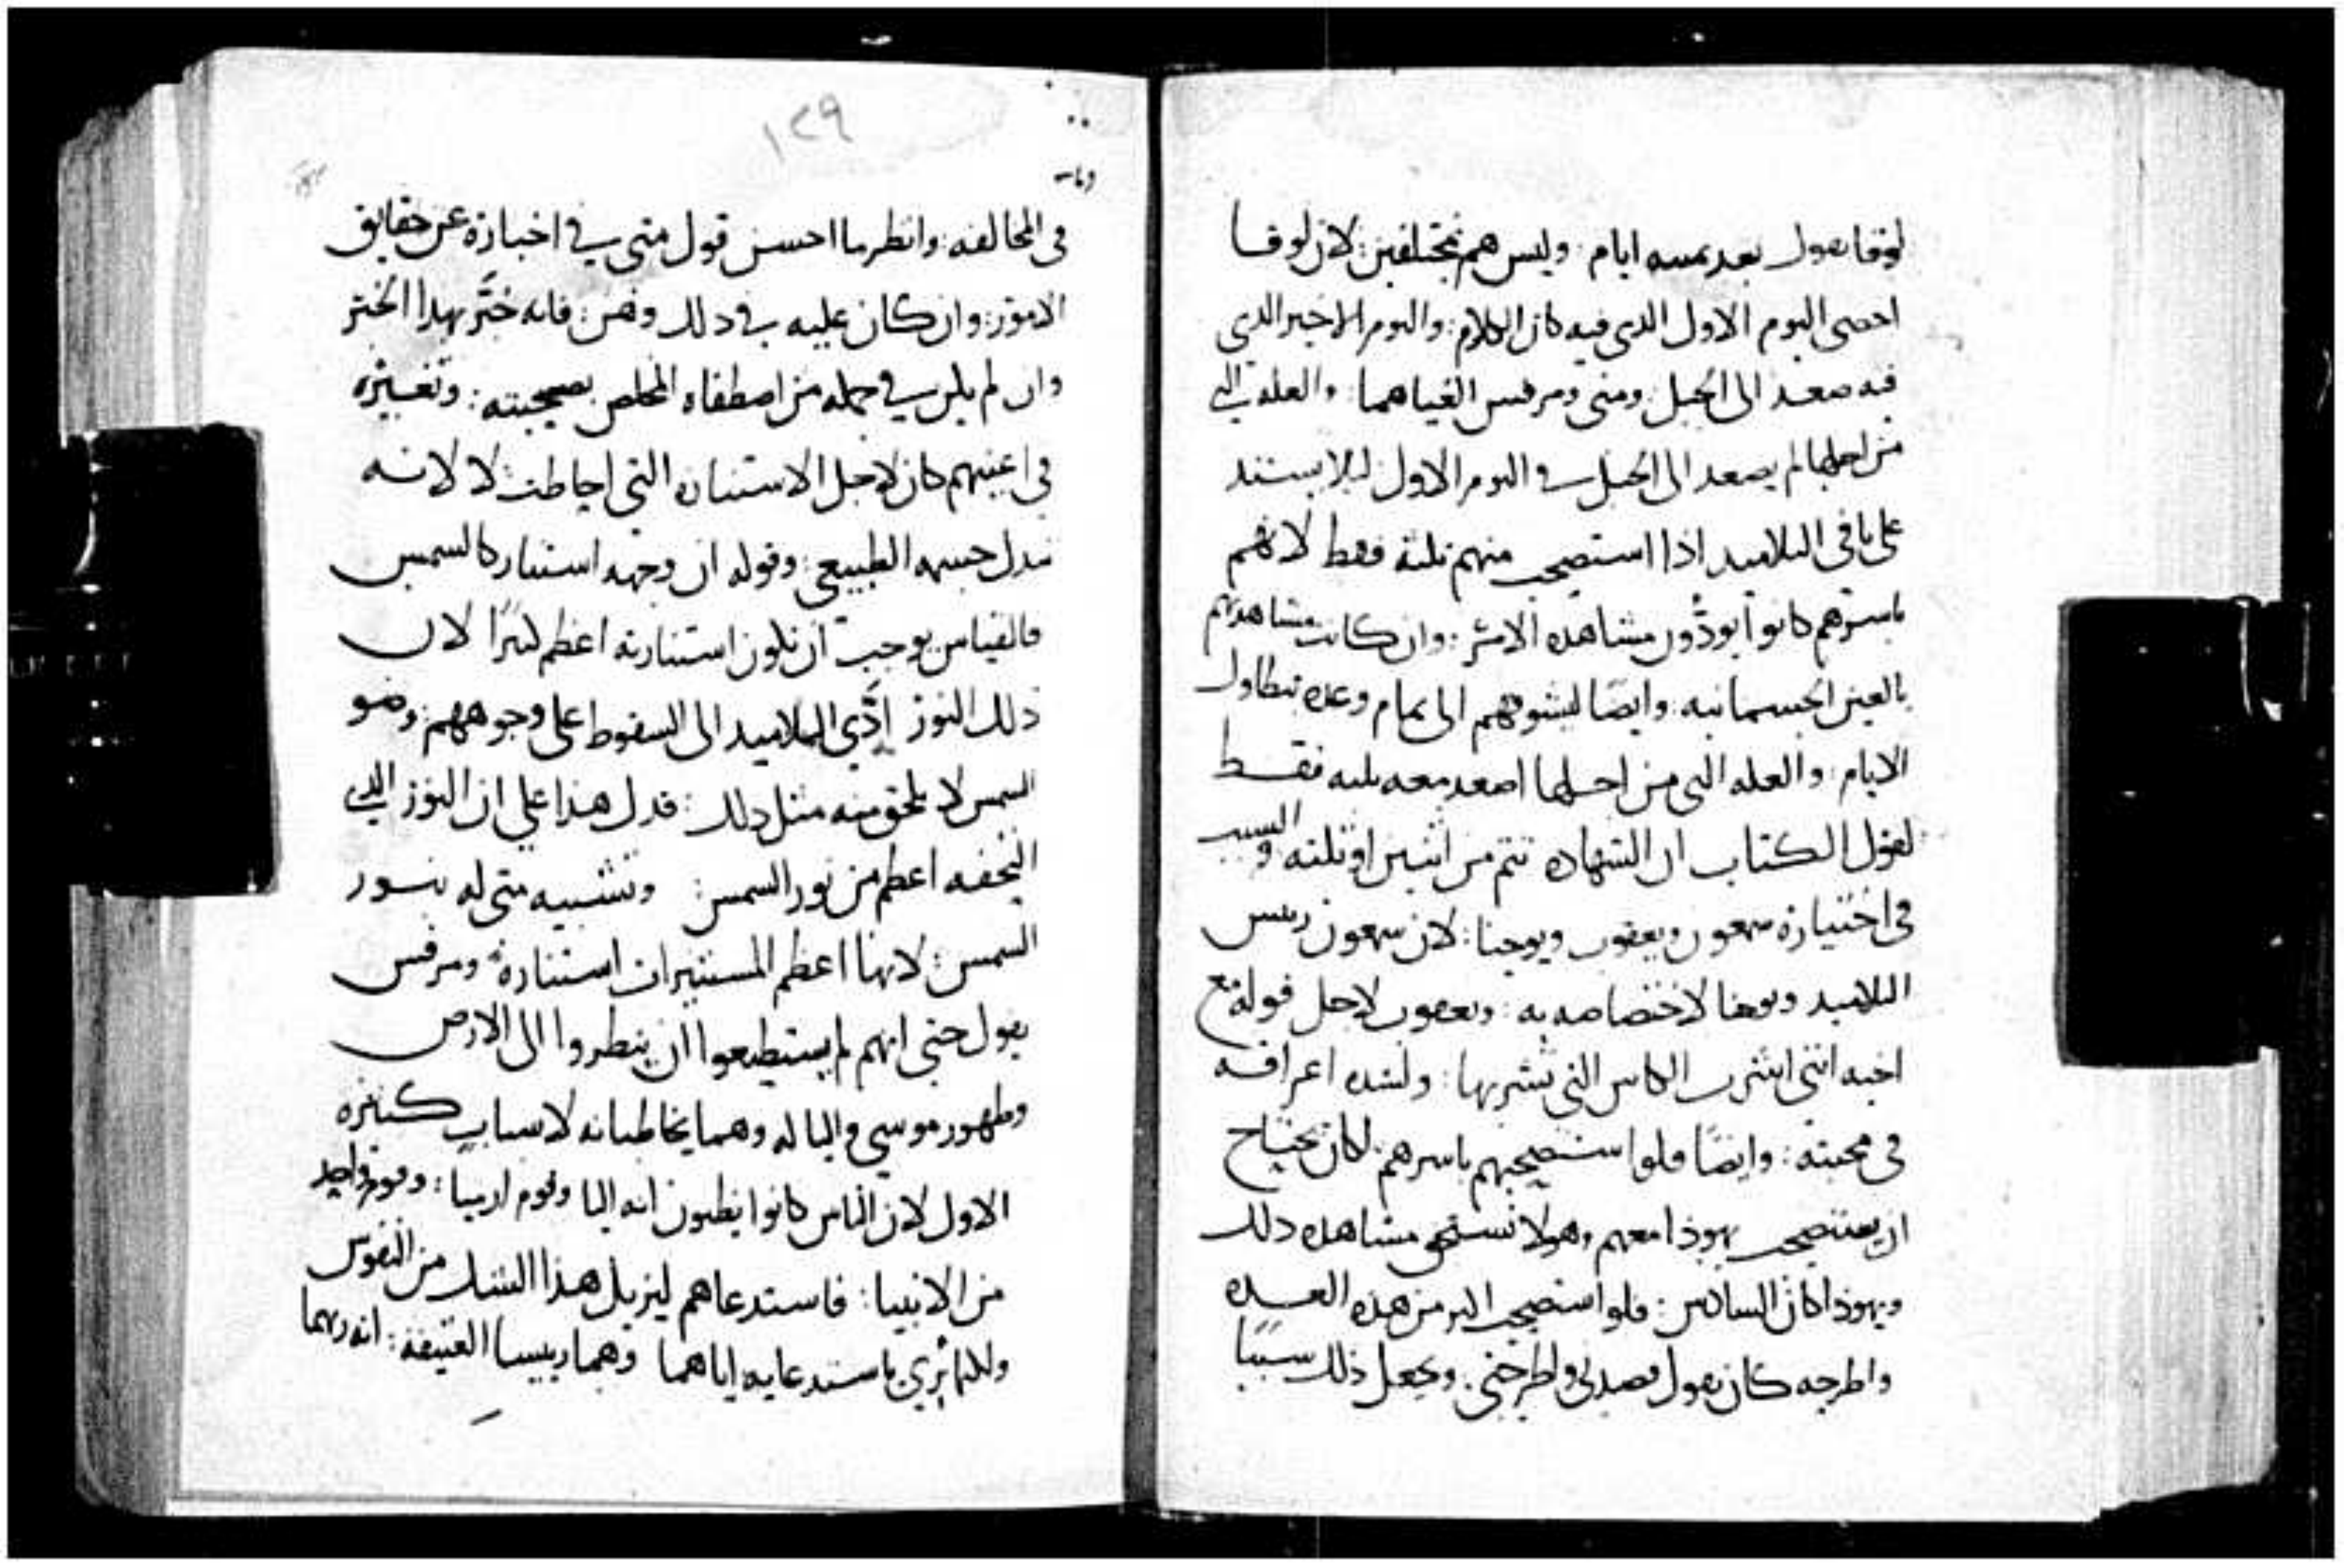 لوقا يقول بعد ثمنيه ايام : وليس هم مختلفين : لان لوقا
احصى اليوم الاول الدى فيه كان الكلام : واليوم الاخير الدى
فيه صعد الى الجبل : ومتى ومرقس الغياهما : والعله التى
من اجلها لم يصعد الى الجبل في اليوم الاول ليلا يستند
على باقى التلاميد اذا استصحب منهم ثلثه فقط لانهم
باسرهم كانوا يودُّون مشاهده الامر : وان كانت مشاهدتهم
بالعين الجسمانيه : وايضًا ليشوقهم الى تمام وعده بتطاول
الايام : والعله التى من اجلها اصعد معه ثلثه فقط
لقول الكتاب ان الشهاده تتم من اثنين او ثلثه والسبب
فى اختياره سمعون ويعقوب ويوحنا : لان سمعون رييس
التلاميد ويوحنا لاختصاصه به : ويعقوب لاجل قوله مع
اخيه اننى اشرب الكاس التى تشربها : ولشده اعراقه
فى محبته : وايضًا فلو استصحبهم باسرهم لكان يحتاج
ان يستصحب يهوذا معهم وهو لا تستحق مشاهده دلك
ويهوذا كان السادس : فلو استصحب اكثر من هذه العده
واطرحه كان يقول قصدنى واطرحنى : ويجعل ذلك سببًا
١٢٩
فى المخالفه : وانظر ما احسن قول متى في اخباره عن حقايق
الامور : وان كان عليه في دلك وهن : فانه خبَّر بهدا الخبر
وان لم يكن في جمله من اصطفاه المخلص بصحبته : وتغييره
فى اعينهم كان لاجل الاستناره التى احاطت : لا لانه
تبدل جسمه الطبيعى : وقوله ان وجهه استنار كالشمس
فالقياس يوجب ان تكون استنارته اعظم كثيرًا لان
ذلك النور ادَّى التلاميد الى السقوط على وجوههم : وضو
الشمس لا يلحق منه مثل دلك : فدل هذا على ان النور الدى
التحفه اعظم من نور الشمس : وتشبيه متى له بنور
الشمس : لانها اعظم المستنيرات استناره ومرقس
يقول حتى انهم لم يستطيعوا ان ينظروا الى الارض
وظهور موسى وايليا له وهما يخاطبانه لاسباب كثيره
الاول لان الناس كانوا يظنون انه ايليا وقوم ارميا : وقوم واحد
من الانبيا : فاستدعاهم ليزيل هذا الشك من النفوس
وكيما يُرى باستدعايه اياهما وهما رييسا العتيقه : انه ربهما